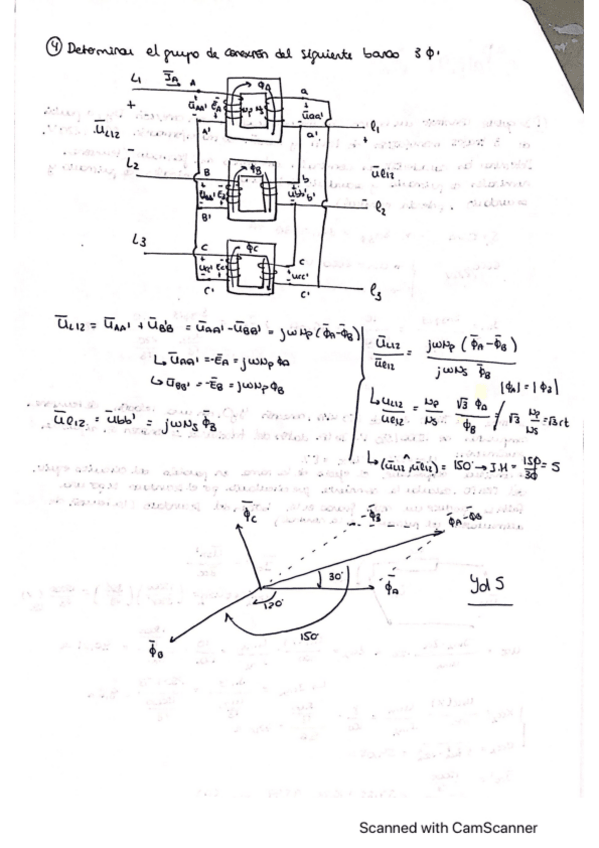 ④ Determinar el grupo de conexión del siguiente banco 3ϕ.
L1 I̅A A ϕA a
+ U̅AA' E̅A Np Ns U̅aa' l1
U̅L12 A' a' +
L2 B ϕB b U̅l12
U̅BB' U̅bb' b' l2
B'
L3 C ϕC c
C' c' l3
U̅L12 = U̅AA' + U̅B'B = U̅AA' - U̅BB' = jωNp (ϕ̅A - ϕ̅B)
↳ U̅AA' = -E̅A = jωNp ϕA
↳ U̅BB' = -E̅B = jωNp ϕB
U̅l12 = U̅bb' = jωNs ϕ̅B
U̅L12 / U̅l12 = jωNp (ϕ̅A - ϕ̅B) / jωNs ϕ̅B
|ϕA| = |ϕB|
↳ UL12 / Ul12 = Np / Ns √3 ϕA / ϕB = √3 Np / Ns = √3 rt
↳ (U̅L12 ^ U̅l12) = 150° → I.H = 150 / 30 = 5
ϕ̅C -ϕ̅B ϕ̅A-ϕ̅B
30° ϕ̅A
120°
150°
ϕ̅B
Yd5
Scanned with CamScanner